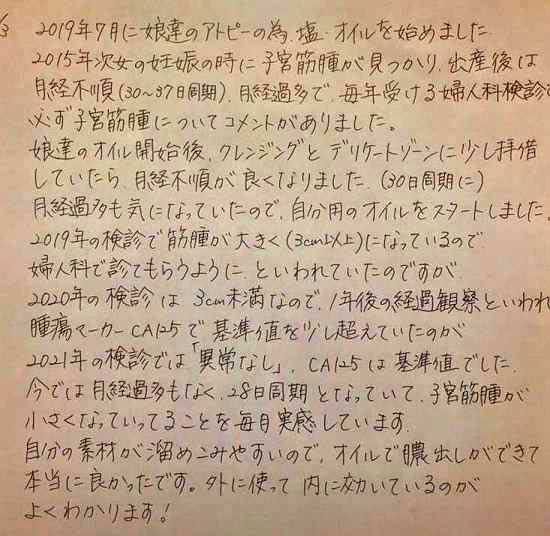 2019年7月に娘達のアトピーの為、塩・オイルを始めました
2015年次女の妊娠の時に子宮筋腫が見つかり、出産後は
月経不順(30〜37日周期)、月経過多で、毎年受ける婦人科検診で
必ず子宮筋腫についてコメントがありました。
娘達のオイル開始後、クレンジングとデリケートゾーンに少し拝借
していたら、月経不順が良くなりました。(30日周期に)
月経過多も気になっていたので、自分用のオイルをスタートしました。
2019年の検診で筋腫が大きく(3cm以上)になっているので
婦人科で診てもらうように、といわれていたのですが、
2020年の検診は3cm未満なので、1年後の経過観察といわれ
腫瘍マーカーCA125で基準値を少し超えていたのが
2021年の検診では「異常なし」、CA125は基準値でした。
今では月経過多もなく、28日周期となっていて、子宮筋腫が
小さくなっていってることを毎月実感しています。
自分の素材が溜めこみやすいので、オイルで膿出しができて
本当に良かったです。外に使って内に効いているのが
よくわかります!